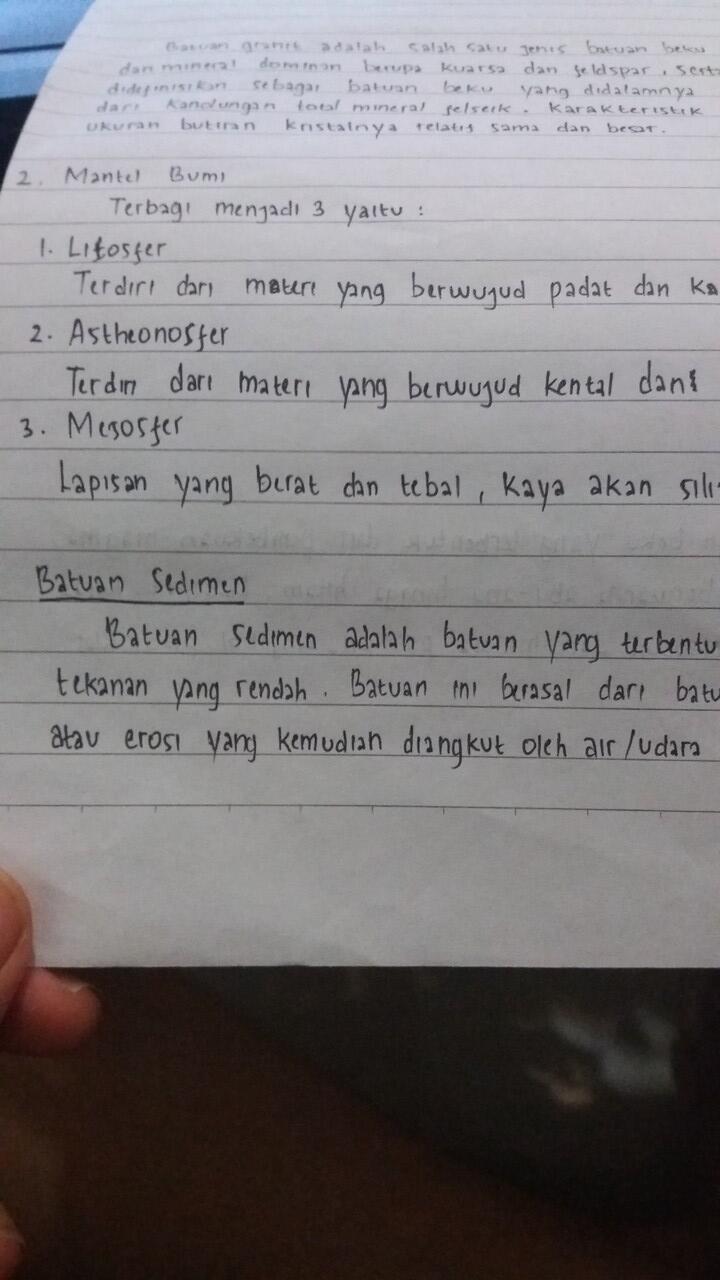 Batuan granit adalah salah satu jenis batuan beku
dan mineral dominan berupa kuarsa dan feldspar, serta
didefinisikan sebagai batuan beku yang didalamnya
dari kandungan total mineral felseik. Karakteristik
ukuran butiran kristalnya relatif sama dan besar.
2. Mantel Bumi
Terbagi menjadi 3 yaitu :
1. Litosfer
Terdiri dari materi yang berwujud padat dan ka
2. Astheonosfer
Terdiri dari materi yang berwujud kental dan
3. Mesosfer
Lapisan yang berat dan tebal, kaya akan sili
Batuan Sedimen
Batuan sedimen adalah batuan yang terbentu
tekanan yang rendah. Batuan ini berasal dari batu
atau erosi yang kemudian diangkut oleh air/udara